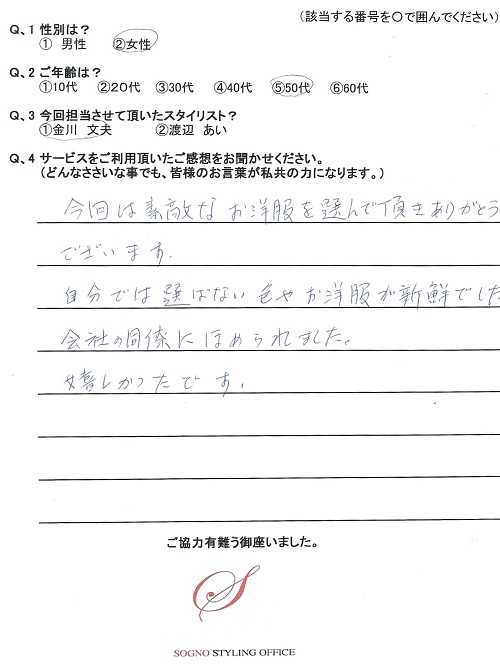 (該当する番号を○で囲んでください)
Q、1 性別は?
① 男性 ②女性
Q、2 ご年齢は?
①10代 ②20代 ③30代 ④40代 ⑤50代 ⑥60代
Q、3 今回担当させて頂いたスタイリスト?
①金川 文夫 ②渡辺 あい
Q、4 サービスをご利用頂いたご感想をお聞かせください。
(どんなささいな事でも、皆様のお言葉が私共の力になります。)
今回は素敵なお洋服を選んで頂きありがとう
ございます。
自分では選ばない色やお洋服が新鮮でした
会社の同僚にほめられました。
嬉しかったです。
ご協力有難う御座いました。
S
SOGNO STYLING OFFICE